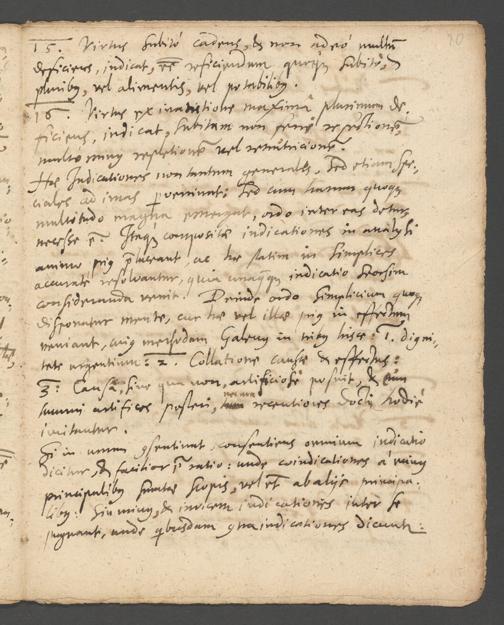 15. Virtus subito cadens, & non adeo multum
deficiens, indicat, esse reficiendum quoque subito,
pluribus, vel alimentis, vel potibus.
16. Virtus ex inanitione maxima plurimum de-
ficiens, indicat, subitam non ferre refectionem,
multo minus repletionem vel renutricionem.
Hae Indicationes non tantum generales, sed etiam spe-
ciales ad imas perveniunt: sed cum harum quoque
multitudo magna emergat, ordo inter eas detur
necesse est. Itaque compositae indicationes in analysi
animo prius ac hae statim in simplices
accurate resolvantur, quia unaquaeque indicatio seorsim
consideranda venit. Deinde ordo simplicium quoque
disponatur mente, cur hae vel illae prius in effectum
veniant, cuius methodum Galenus in tribus hisce: 1. digni-
tate urgentium: 2. Collatione causae & effectus:
3. Causa, sine qua non, artificiose posuit, & eum
summi artifices posteri, necnon recentiores docti hodie
imitantur.
Si in unum consentiunt, consentiens omnium indicatio
dicitur, & facilior est ratio: unde coindicationes a
principalibus sumtae scopis, vel etiam ab aliis minus prima-
libus: Sin minus, & invicem indicationes inter se
pugnant, unde quibusdam contraindicationes dicuntur: